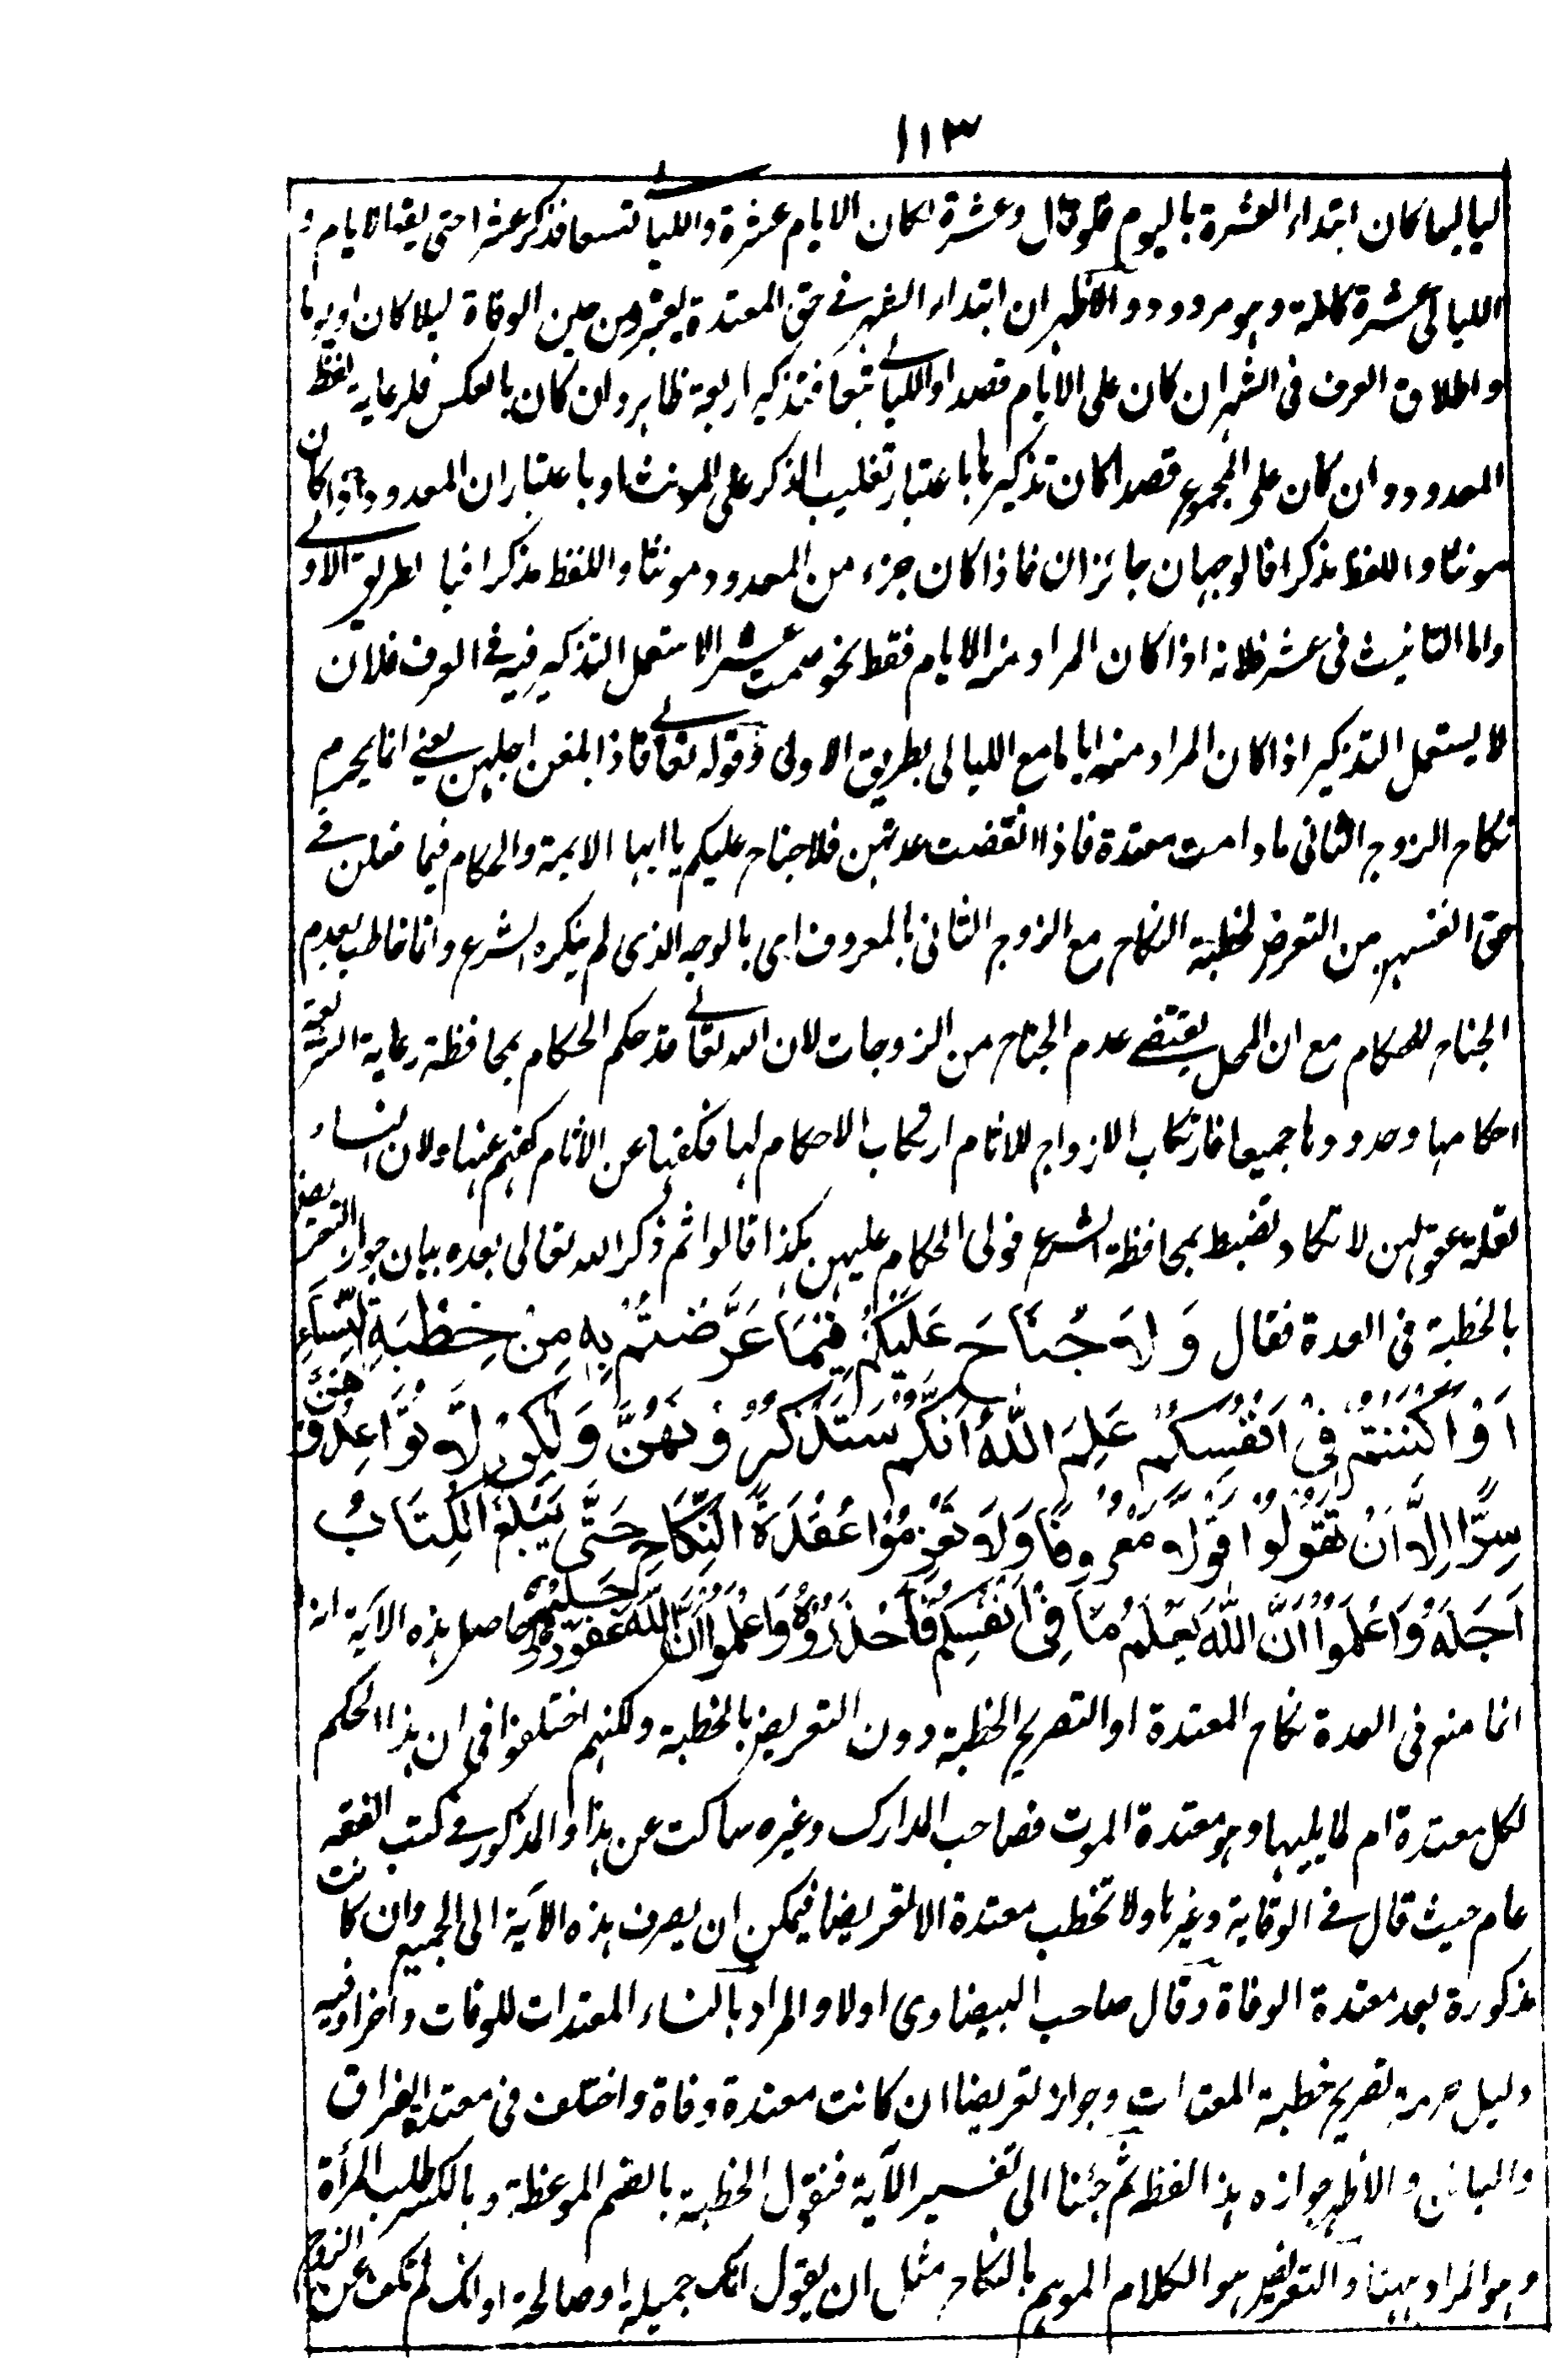 ١١٣
لياليها كان ابتداء العشرة باليوم فلو قال وعشرة لكان الايام عشرة والليالي تسعا فذكر عشرا حتى يقع الايام و
الليالى عشرة كاملة وهو مردود والاظهر ان ابتداء الشهر في حق المعتدة يعتبر من حين الوفاة ليلا كان او يوما
واطلاق العرف فى الشهر ان كان على الايام قصدا والليالي تبعا فتذكير اربعة ظاهر وان كان بالعكس فلرعاية لفظ
المعدود وان كان على المجموع قصدا كان تذكيرها باعتبار تغليب المذكر على المونث او باعتبار ان المعدود اذا كان
مونثا واللفظ مذكرا فالوجهان جائزان فاذا كان جزء من المعدود مونثا واللفظ مذكرا فبا لطريق الاولے
واما التانيث فى عشر فلانه اذا كان المراد منه الايام فقط نحو صمت عشرا لا ستعمل التذكير فيه في العرف فلان
لا يستعمل التذكير اذا كان المراد منه اياما مع الليالى بطريق الاولى وقوله تعالے فاذا بلغن اجلهن يعني انما يحرم
نكاح الزوج الثانى ما دامت معتدة فاذا انقضت عدتهن فلا جناح عليكم يا ايها الايمة والحكام فيما فعلن في
حق انفسهن من التعرض لخطبة النكاح مع الزوج الثانى بالمعروف اى بالوجه الذى لم ينكره الشرع وانما خاطب بعدم
الجناح للحكام مع ان المحل يقتضے عدم الجناح من الزوجات لان الله تعالے قد حكم الحكام بمحافظة رعاية الشريعة
احكامها وحدودها جميعا فارتكاب الازواج للاثام ارتكاب الاحكام لها فكفها عن الآثام كفهم عنها ولان النساء
لقلة عقولهن لا تكاد تضبط بمحافظة الشرع فولى الحكام عليهن هكذا قالوا ثم ذكر الله تعالى بعده بيان جواز التعريض
بالخطبة فى العدة فقال وَلَا جُنَاحَ عَلَيْكُمْ فِيْمَا عَرَّضْتُمْ بِهٖ مِنْ خِطْبَةِ النِّسَآءِ
اَوْ اَكْنَنْتُمْ فِيْ اَنْفُسِكُمْ عَلِمَ اللّٰهُ اَنَّكُمْ سَتَذْكُرُوْنَهُنَّ وَلٰكِنْ لَّا تُوَاعِدُوْهُنَّ
سِرًّا اِلَّا اَنْ تَقُوْلُوْا قَوْلًا مَّعْرُوْفًا وَلَا تَعْزِمُوْا عُقْدَةَ النِّكَاحِ حَتّٰى يَبْلُغَ الْكِتَابُ
اَجَلَهٗ وَاعْلَمُوْا اَنَّ اللّٰهَ يَعْلَمُ مَا فِيْ اَنْفُسِكُمْ فَاحْذَرُوْهُ وَاعْلَمُوْا اَنَّ اللّٰهَ غَفُوْرٌ حَلِيْمٌ وحاصل هذه الآية انه
انما منع فى العدة نكاح المعتدة او التصريح الخطبة دون التعريض بالخطبة ولكنهم اختلفوا في ان هذا الحكم
لكل معتدة ام لما يليها وهو معتدة الموت فصاحب المدارك وغيره ساكت عن هذا والمذكور في كتب الفقه
عام حيث قال في الوقاية وغيرها ولا تخطب معتدة الا تعريضا فيمكن ان يصرف هذه الآية الى الجميع وان كانت
مذكورة بعد معتدة الوفاة وقال صاحب البيضاوى اولا والمراد بالنساء المعتدات للوفات وآخرا وفيه
دليل حرمة تصريح خطبة المعتدات وجواز تعريضا ان كانت معتدة وفاة واختلف فى معتدة الفراق
والبائن والاظهر جوازه هذا لفظه ثم جئنا الى تفسير الآية فنقول الخطبة بالضم الموعظة وبالكسر طلب المرأة
وهو المراد ههنا والتعريض هو الكلام الموهم بالنكاح مثل ان يقول انك جميلة او صالحة او انك لم تكف عن الزوج